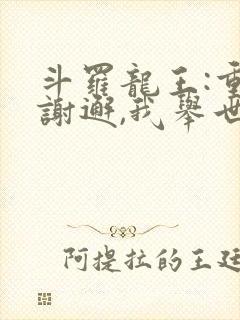 斗羅龍王:重
謝邂,我舉世
阿提拉的王廷